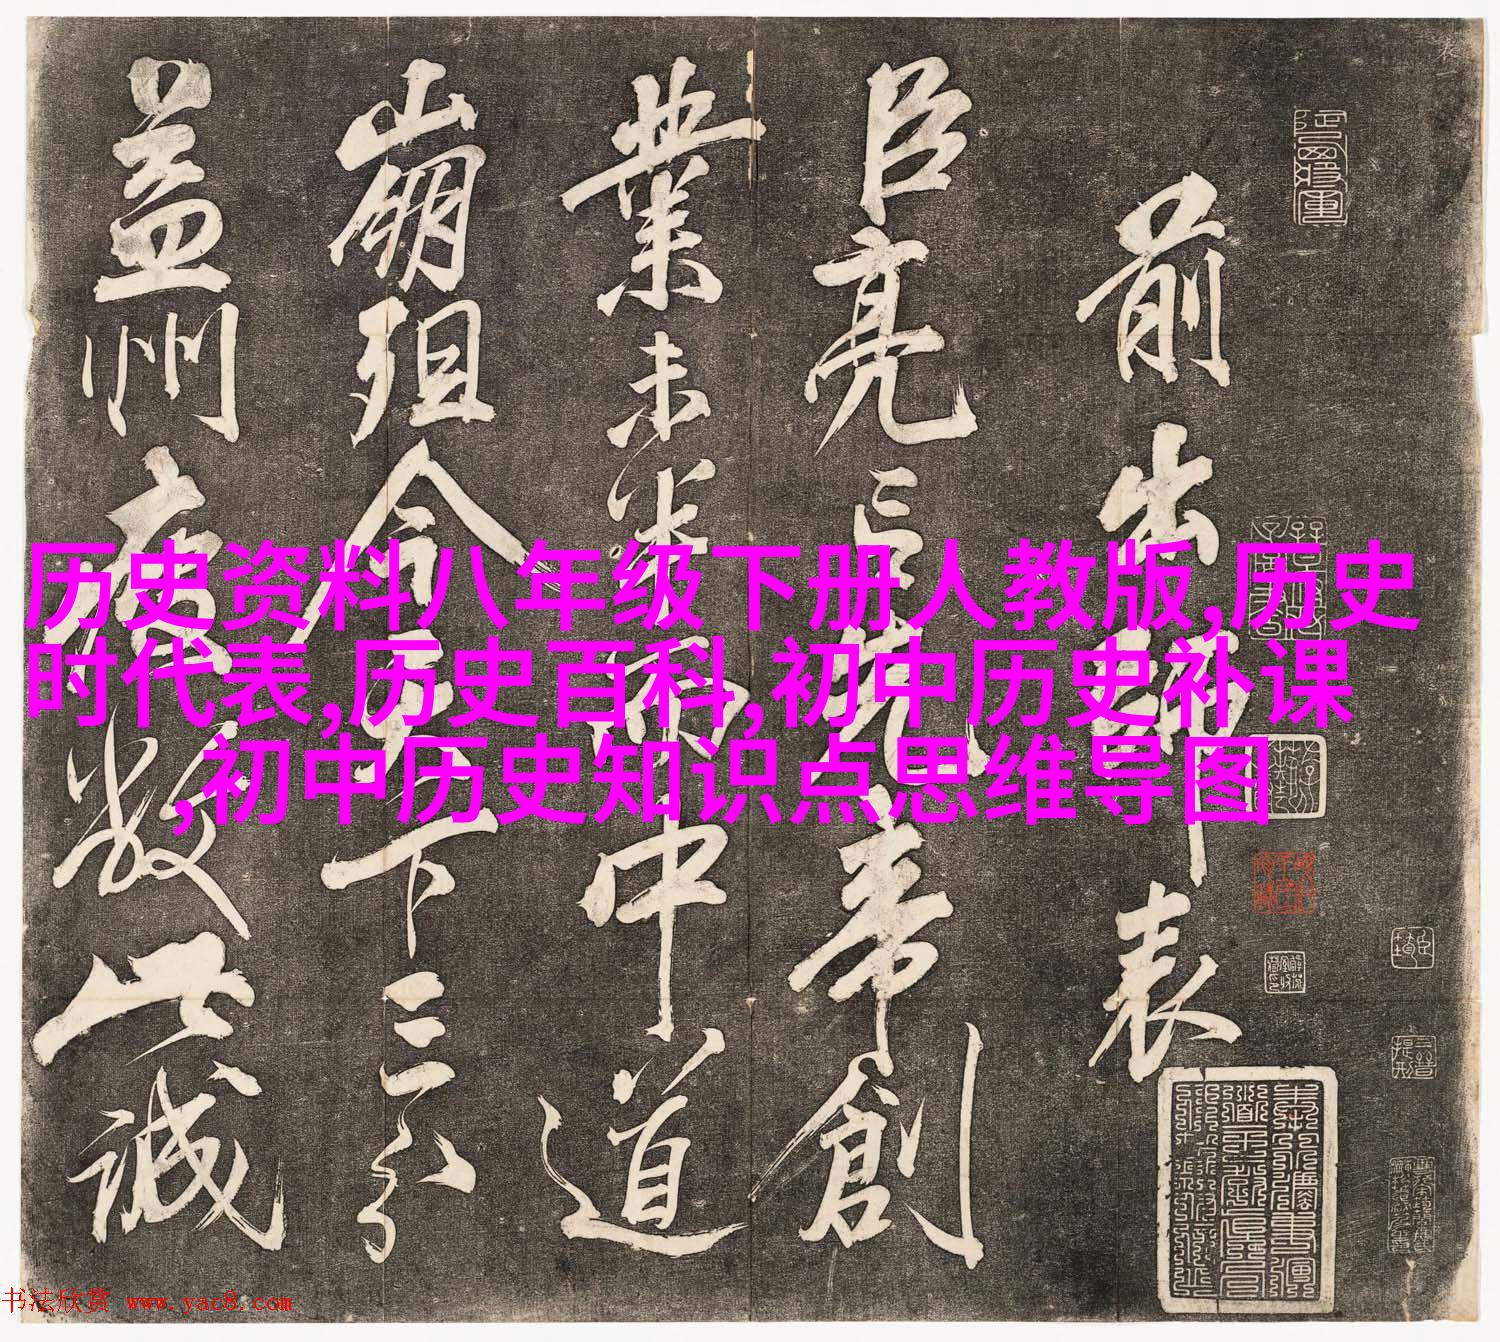 前出師表
臣亮言先帝創
業未半而中道
崩殂今天下三分
益州疲敝此誠
历史资料八年级下册人教版,历史
时代表,历史百科,初中历史补课
,初中历史知识点思维导图
三晉提刑
书法欣赏 www.yac8.com